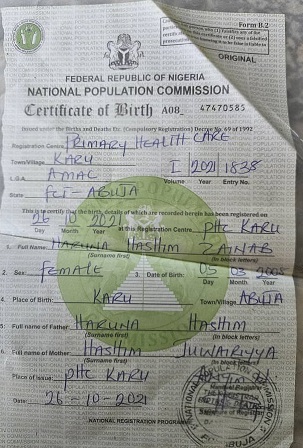 Form B.2
ORIGINAL
FEDERAL REPUBLIC OF NIGERIA
NATIONAL POPULATION COMMISSION
Certificate of Birth A08 47470585
Issued under the Births and Deaths Etc. (Compulsory Registration) Decree No. 69 of 1992
Registration Centre: PRIMARY HEALTH CARE
Town/Village KARU I 2021 1838
L.G.A. AMAC Volume Year Entry No.
State FCT-ABUJA
This is to certify that the birth, details of which are recorded herein has been registered on
10 2021 at this Registration Centre PHC KARU
Day Month Year
1. Full Name: HARUNA HASHIM ZAINAB
(Surname first) (in block letters)
2. Sex: FEMALE 3. Date of Birth: 05 03
Day Month Year
4. Place of Birth: KARU Town/Village ABUJA
5. Full name of Father: HARUNA HASHIM
(Surname first) (In block letters)
6. Full name of Mother: HASHIM JUWARIYYA
(Surname first) (in block letters)
Place of Issue: PHC KARU
Date: 26-10-2021
Signature of Registrar
NATIONAL REGISTRATION PROGRAMME